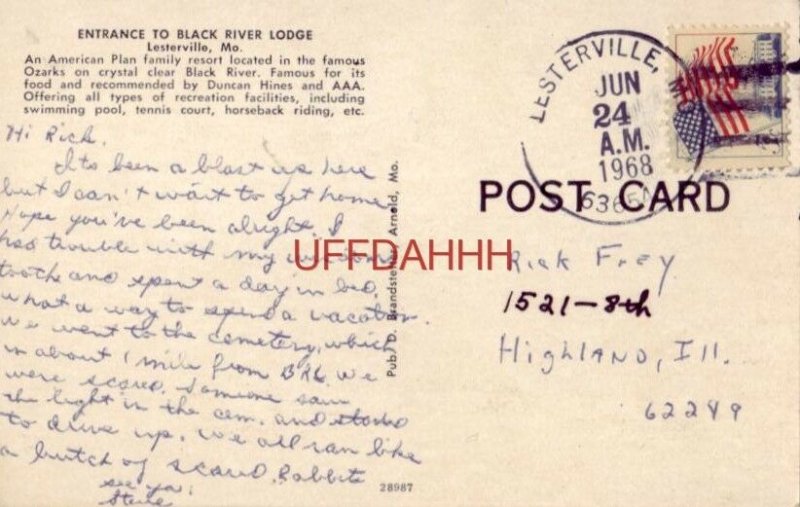 ENTRANCE TO BLACK RIVER LODGE
Lesterville, Mo.
An American Plan family resort located in the famous
Ozarks on crystal clear Black River. Famous for its
food and recommended by Duncan Hines and AAA.
Offering all types of recreation facilities, including
swimming pool, tennis court, horseback riding, etc.
Hi Rick.
Its been a blast up here
but I can't wait to get home
Hope you've been alright. I
had trouble with my wisdom
tooth and spent a day in bed.
what a way to spend a vacation.
We went to the cemetery, which
in about 1 mile from BRL. We
were scared. Someone saw
the light in the cem. and started
to drive up. We all ran like
a butch of scared Rabbits
see ya.
Steve
Pub. D. Brandstetter, Arnold, Mo.
28987
LESTERVILLE,
JUN
24
A.M.
1968
POST CARD
UFFDAHHH
Rick Frey
1521-8th
Highland, Ill.
62249